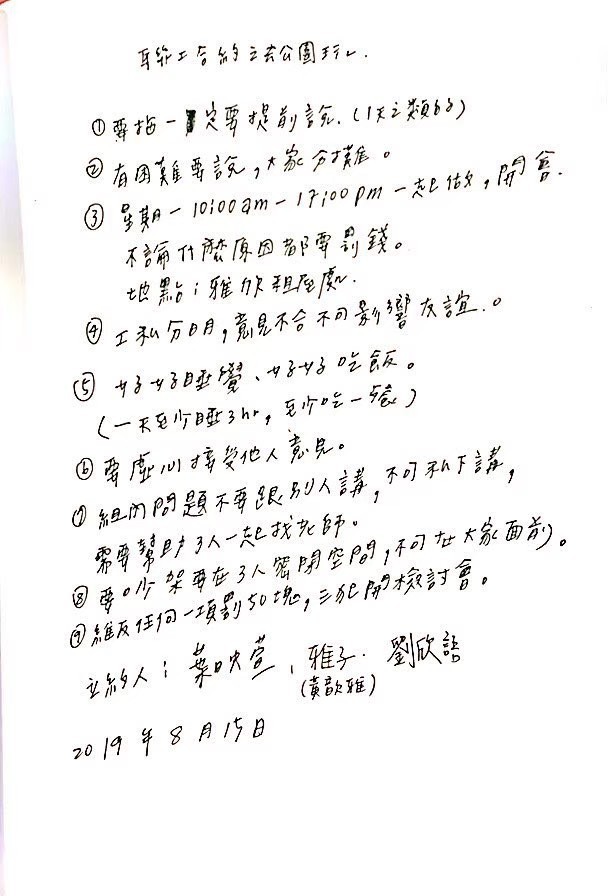 合約
①要拍一定要提前說.(1天之類的)
②有困難要說,大家分擔。
③星期一10:00am-17:00pm一起做,開會.
不論什麼原因都要罰錢。
地點:雅欣租屋處.
④工私分明,意見不合不可影響友誼.。
⑤好好睡覺、好好吃飯。
(一天至少睡3hr,至少吃一餐)
⑥要虛心接受他人意見。
⑦組內問題不要跟別人講,不可私下講,
需要幫助3人一起找老師。
⑧要吵架要在3人密閉空間,不可在大家面前。
⑨維反任何一項罰50塊,三犯開檢討會。
立約人:葉映萱、雅子.劉欣語
(黃歆雅)
2019年8月15日